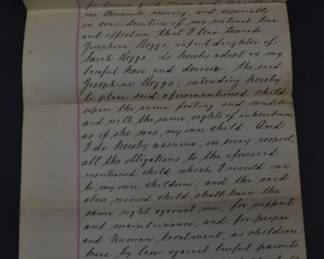 for divers good causes and
me thereunto moving, and especially
in consideration of my natural love
and affection that I bear towards
Josephine Reggs, infant daughter of
Sarah Reggs, do hereby adopt as my
lawful heir and devisee, the said
Josephine Reggs; intending hereby
to place said aforementioned child
upon the same footing and condition
and with the same rights of inheritance,
as if she was my own child. And
I do hereby assume, in every respect,
all the obligations to the aforesaid
mentioned child which I would owe
to my own children; and the said
above named child shall have the
same right against me, for support
and maintenance, and for proper
and human treatment, as children
have by law against lawful parents.